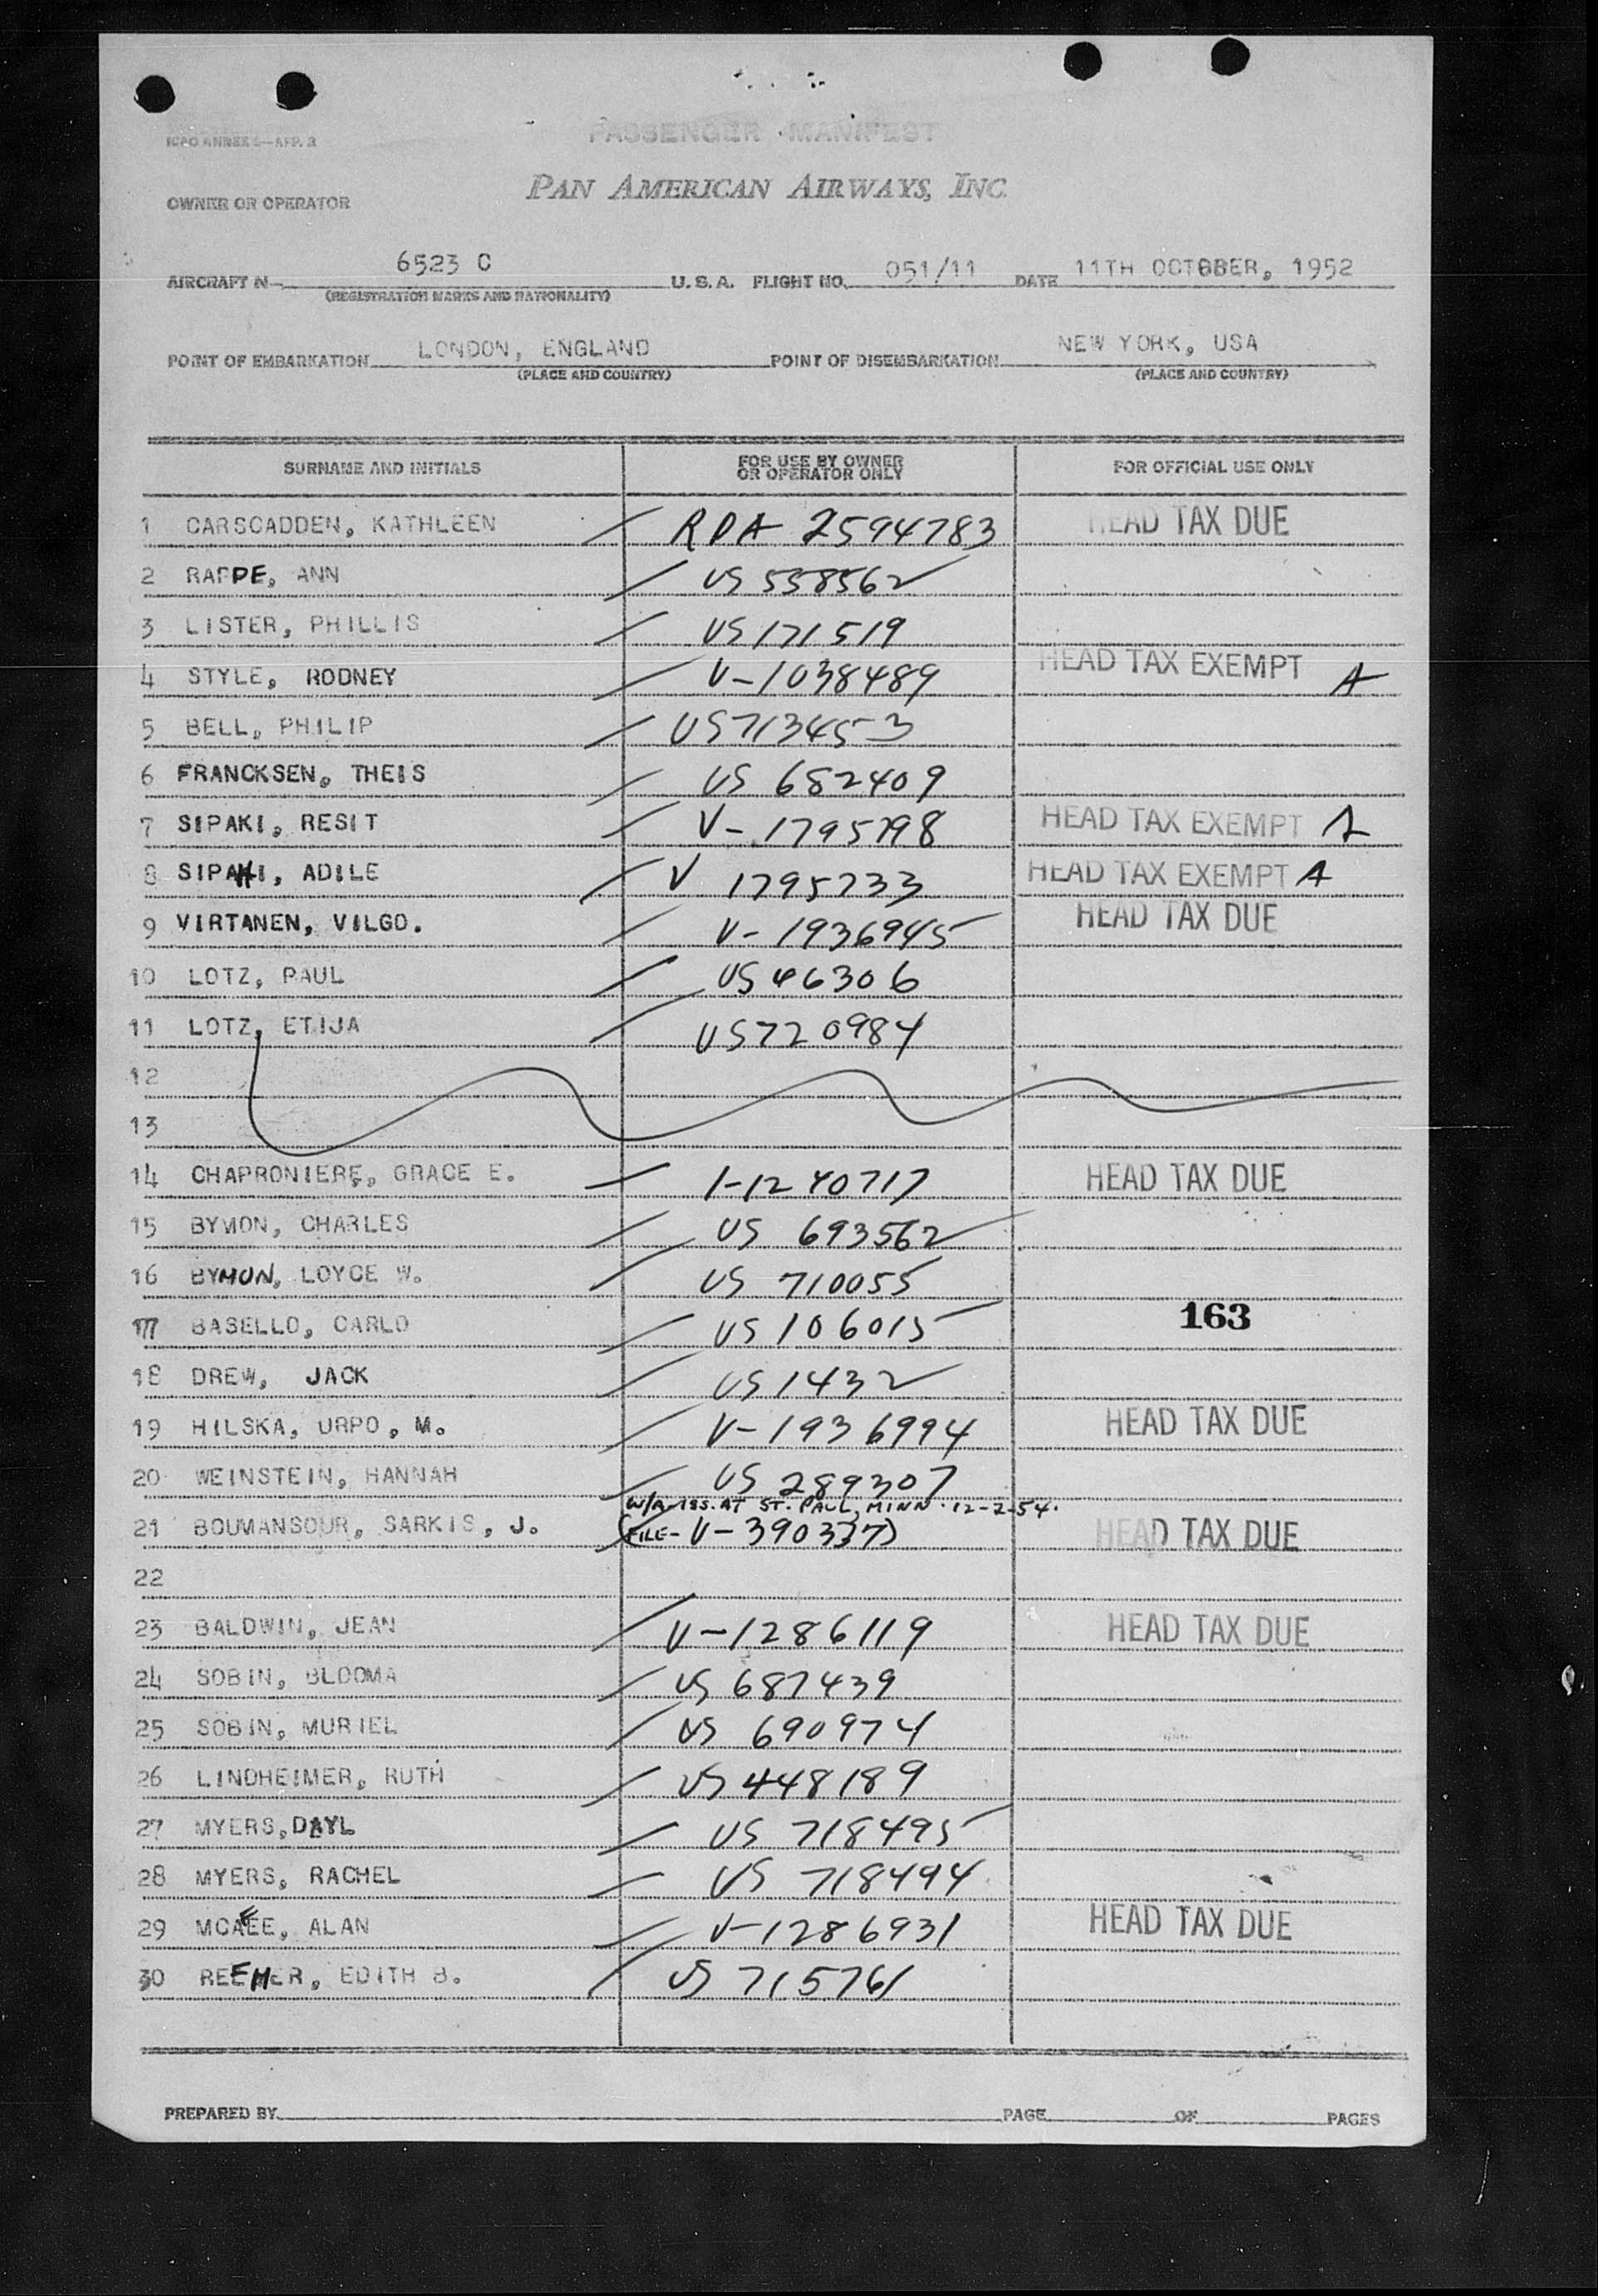 ICAO ANNEX 9—APP. 3
PASSENGER MANIFEST
OWNER OR OPERATOR PAN AMERICAN AIRWAYS, INC.
AIRCRAFT N— 6523 C U.S.A. FLIGHT NO. 051/11 DATE 11TH OCTOBER, 1952
(REGISTRATION MARKS AND NATIONALITY)
POINT OF EMBARKATION LONDON, ENGLAND POINT OF DISEMBARKATION NEW YORK, USA
(PLACE AND COUNTRY) (PLACE AND COUNTRY)
SURNAME AND INITIALS FOR USE BY OWNER OR OPERATOR ONLY FOR OFFICIAL USE ONLY
1 CARSCADDEN, KATHLEEN / RPA 2594783 HEAD TAX DUE
2 RAPPE, ANN / US 558562
3 LISTER, PHILLIS / US 171519
4 STYLE, RODNEY / V-1038489 HEAD TAX EXEMPT A
5 BELL, PHILIP / US 713453
6 FRANCKSEN, THEIS / US 682409
7 SIPAKI, RESIT / V-1795798 HEAD TAX EXEMPT A
8 SIPAHI, ADILE / V 1795733 HEAD TAX EXEMPT A
9 VIRTANEN, VILGO. / V-1936945 HEAD TAX DUE
10 LOTZ, PAUL / US 46306
11 LOTZ, ETIJA / US 720984
12
13
14 CHAPRONIERE, GRACE E. / 1-1240717 HEAD TAX DUE
15 BYMON, CHARLES / US 693562
16 BYMON, LOYCE W. / US 710055
17 BASELLO, CARLO / US 106015 163
18 DREW, JACK / US 1432
19 HILSKA, URPO, M. / V-1936994 HEAD TAX DUE
20 WEINSTEIN, HANNAH / US 289307
W/A-ISS. AT ST. PAUL, MINN. 12-2-54.
21 BOUMANSOUR, SARKIS, J. / (FILE- V-390337) HEAD TAX DUE
22
23 BALDWIN, JEAN / V-1286119 HEAD TAX DUE
24 SOBIN, BLOOMA / US 687439
25 SOBIN, MURIEL / US 690974
26 LINDHEIMER, RUTH / US 448189
27 MYERS, DAYL / US 718495
28 MYERS, RACHEL / US 718494
29 MCAFEE, ALAN / V-1286931 HEAD TAX DUE
30 REEHER, EDITH B. / US 715761
PREPARED BY PAGE OF PAGES